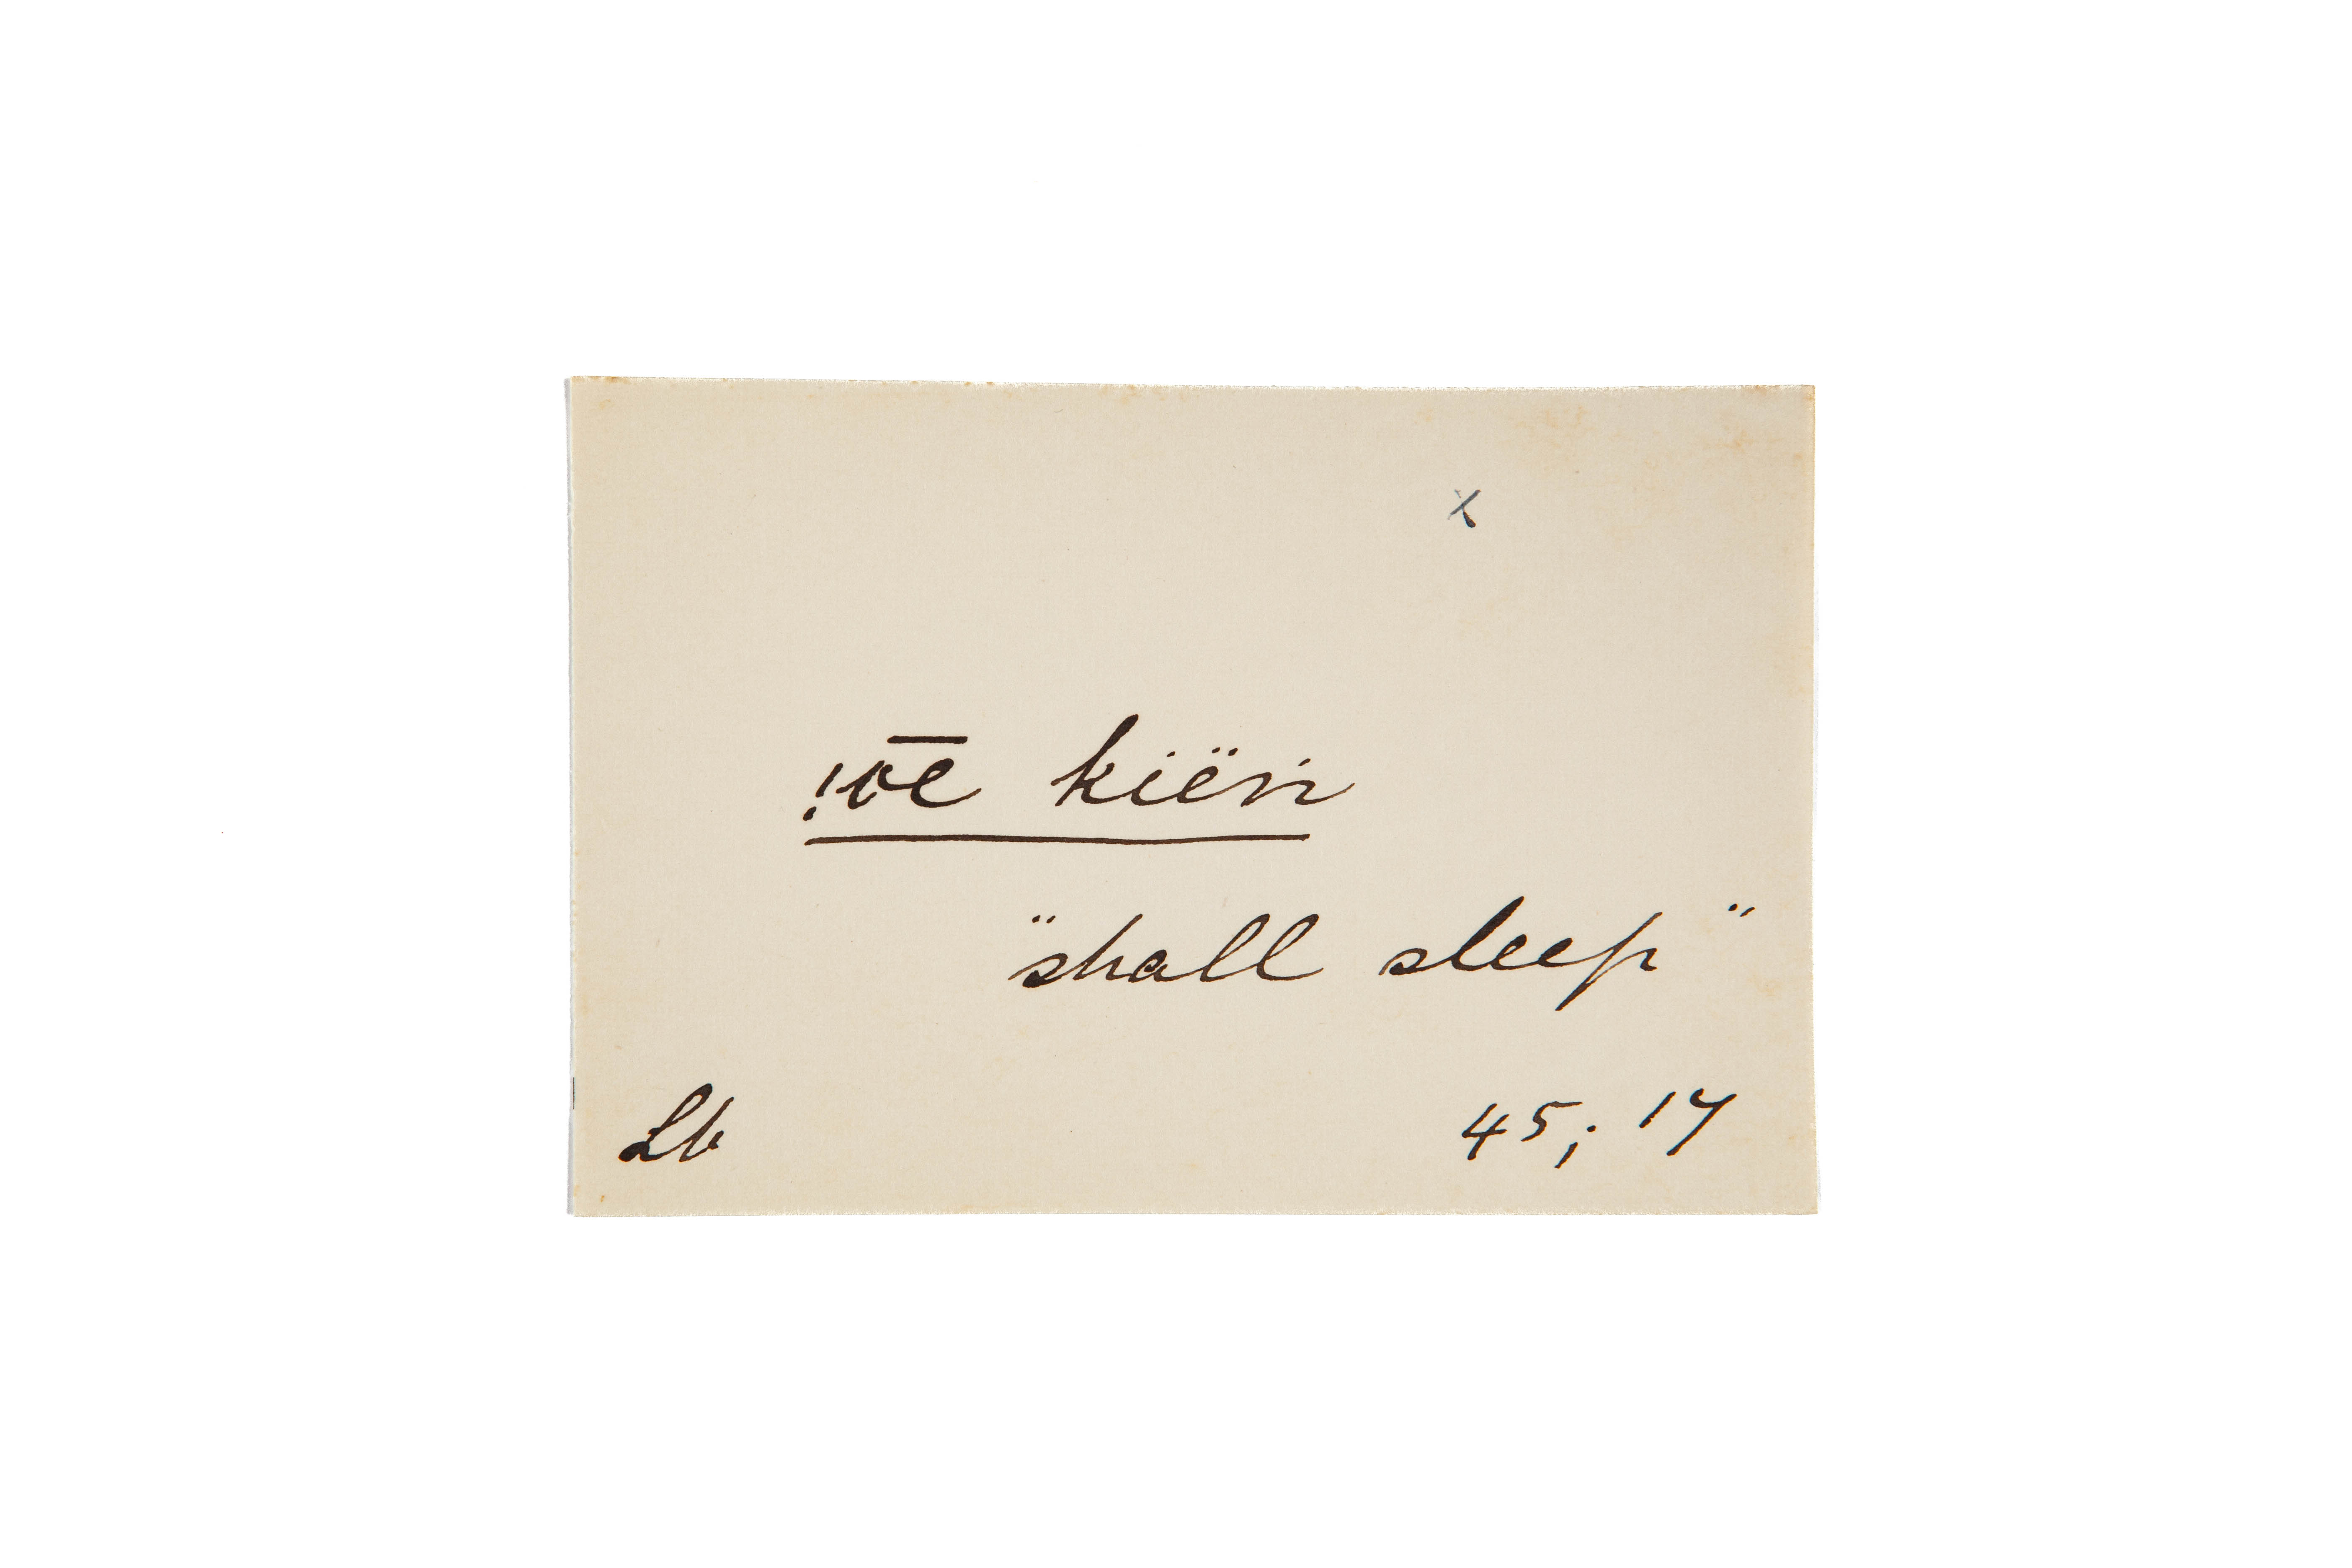 x
!o͞e kiëṅ
"shall sleep"
Lb 45; 17